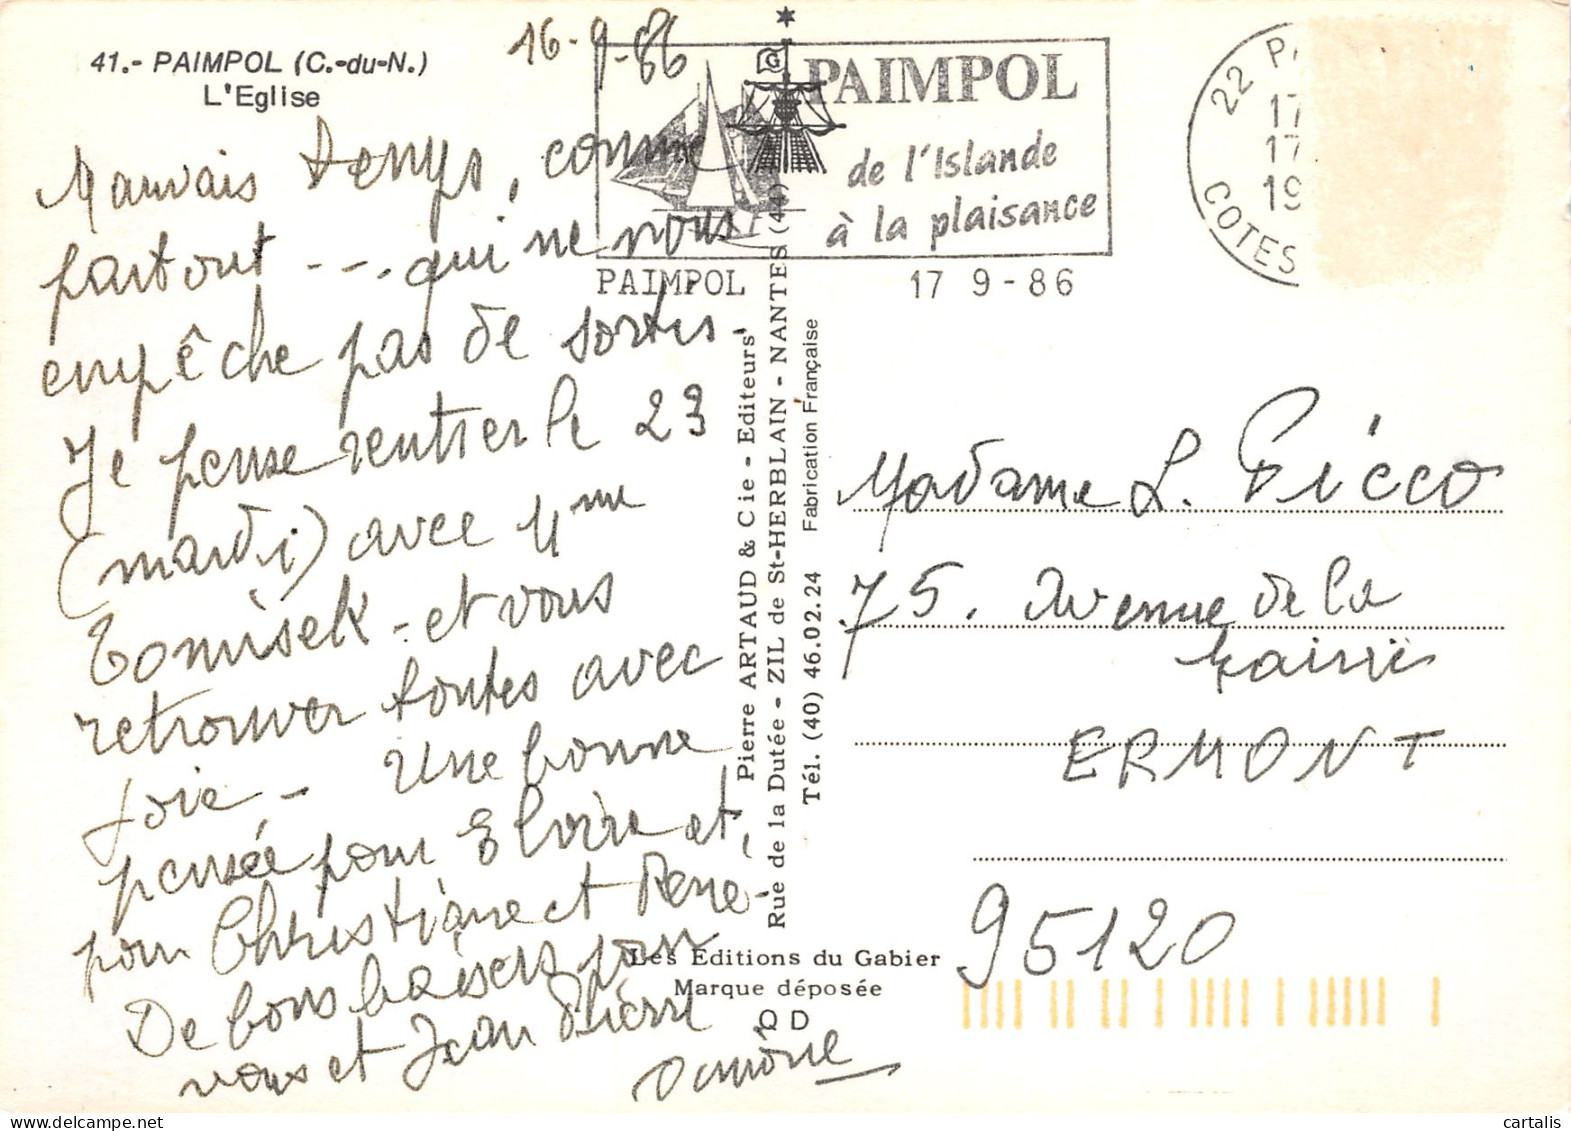 41.- PAIMPOL (C.-du-N.)
L'Eglise
16-9-86
Mauvais temps, comme
partout --- qui ne nous
empêche pas de sortir.
Je pense rentrer le 23
(mardi) avec Mme
Tomisek - et vous
retrouver toutes avec
joie - Une bonne
pensée pour et,
pour Christiane et Rene-
De bons baisers pour
vous et Jean Pierre
PAIMPOL
de l'Islande
à la plaisance
PAIMPOL 17 9-86
22 PA
17
17
19
COTES
Pierre ARTAUD & Cie - Editeurs
Rue de la Dutée - ZIL de St-HERBLAIN - NANTES (44)
Tél. (40) 46.02.24 Fabrication Française
Les Editions du Gabier
Marque déposée
D
Madame L. Picco
75. Avenue de la
Mairie
ERMONT
95120
cartalis